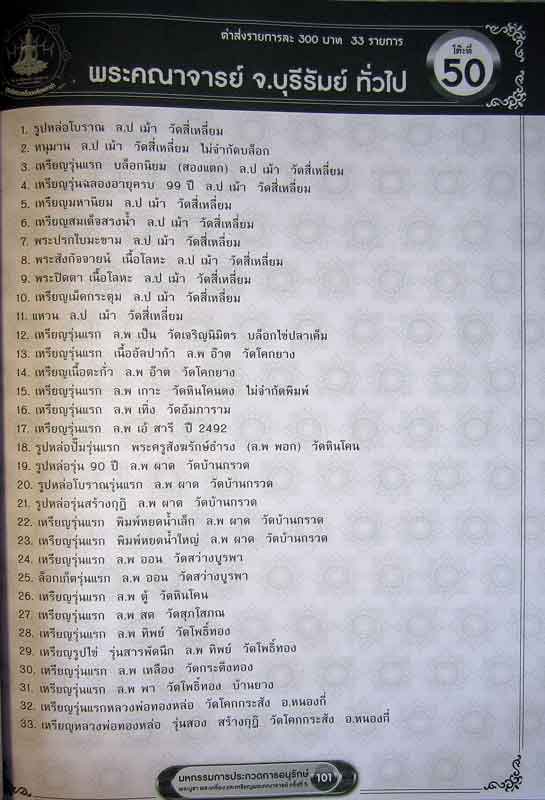 ค่าส่งรายการละ 300 บาท 33 รายการ
โต๊ะที่
50
พระคณาจารย์ จ.บุรีรัมย์ ทั่วไป
1. รูปหล่อโบราณ ล.ป เม้า วัดสี่เหลี่ยม
2. หนุมาน ล.ป เม้า วัดสี่เหลี่ยม ไม่จำกัดบล็อก
3. เหรียญรุ่นแรก บล็อกนิยม (สองแตก) ล.ป เม้า วัดสี่เหลี่ยม
4. เหรียญรุ่นฉลองอายุครบ 99 ปี ล.ป เม้า วัดสี่เหลี่ยม
5. เหรียญมหานิยม ล.ป เม้า วัดสี่เหลี่ยม
6. เหรียญสมเด็จสรงน้ำ ล.ป เม้า วัดสี่เหลี่ยม
7. พระปรกใบมะขาม ล.ป เม้า วัดสี่เหลี่ยม
8. พระสังกัจจายน์ เนื้อโลหะ ล.ป เม้า วัดสี่เหลี่ยม
9. พระปิดตา เนื้อโลหะ ล.ป เม้า วัดสี่เหลี่ยม
10. เหรียญเม็ดกระดุม ล.ป เม้า วัดสี่เหลี่ยม
11. แหวน ล.ป เม้า วัดสี่เหลี่ยม
12. เหรียญรุ่นแรก ล.พ เป็น วัดเจริญนิมิตร บล็อกไข่ปลาเต็ม
13. เหรียญรุ่นแรก เนื้ออัลปาก้า ล.พ อ๊าต วัดโคกยาง
14. เหรียญเนื้อตะกั่ว ล.พ อ๊าต วัดโคกยาง
15. เหรียญรุ่นแรก ล.พ เกาะ วัดหินโคนดง ไม่จำกัดพิมพ์
16. เหรียญรุ่นแรก ล.พ เทิ่ง วัดอัมภาราม
17. เหรียญรุ่นแรก ล.พ เอ้ สารี ปี 2492
18. รูปหล่อปั๊มรุ่นแรก พระครูสังฆรักษ์ธำรง (ล.พ พอก) วัดหินโคน
19. รูปหล่อรุ่น 90 ปี ล.พ ผาด วัดบ้านกรวด
20. รูปหล่อโบราณรุ่นแรก ล.พ ผาด วัดบ้านกรวด
21. รูปหล่อรุ่นสร้างกุฏิ ล.พ ผาด วัดบ้านกรวด
22. เหรียญรุ่นแรก พิมพ์หยดน้ำเล็ก ล.พ ผาด วัดบ้านกรวด
23. เหรียญรุ่นแรก พิมพ์หยดน้ำใหญ่ ล.พ ผาด วัดบ้านกรวด
24. เหรียญรุ่นแรก ล.พ ออน วัดสว่างบูรพา
25. ล็อกเก็ตรุ่นแรก ล.พ ออน วัดสว่างบูรพา
26. เหรียญรุ่นแรก ล.พ ตู้ วัดหินโคน
27. เหรียญรุ่นแรก ล.พ สด วัดสุภโสภณ
28. เหรียญรุ่นแรก ล.พ ทิพย์ วัดโพธิ์ทอง
29. เหรียญรูปไข่ รุ่นสารพัดนึก ล.พ ทิพย์ วัดโพธิ์ทอง
30. เหรียญรุ่นแรก ล.พ เหลือง วัดกระดึงทอง
31. เหรียญรุ่นแรก ล.พ พา วัดโพธิ์ทอง บ้านยาง
32. เหรียญรุ่นแรกหลวงพ่อทองหล่อ วัดโคกกระสัง อ.หนองกี่
33. เหรียญหลวงพ่อทองหล่อ รุ่นสอง สร้างกุฏิ วัดโคกกระสัง อ.หนองกี่
มหกรรมการประกวดการอนุรักษ์
พระบูชา พระเครื่อง และเหรียญพระคณาจารย์ ครั้งที่ 5
101